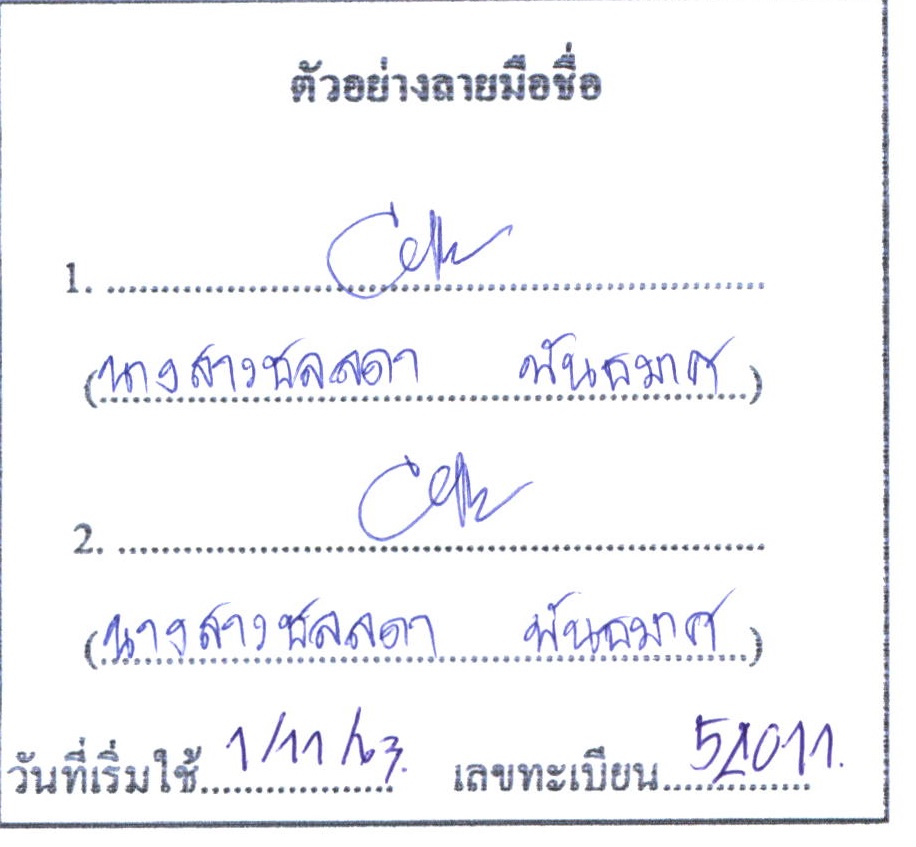 ตัวอย่างลายมือชื่อ
1. ........................................
(นางสาวชลลดา พันธมาศ)
2. ........................................
(นางสาวชลลดา พันธมาศ)
วันที่เริ่มใช้ 1/11/63. เลขทะเบียน